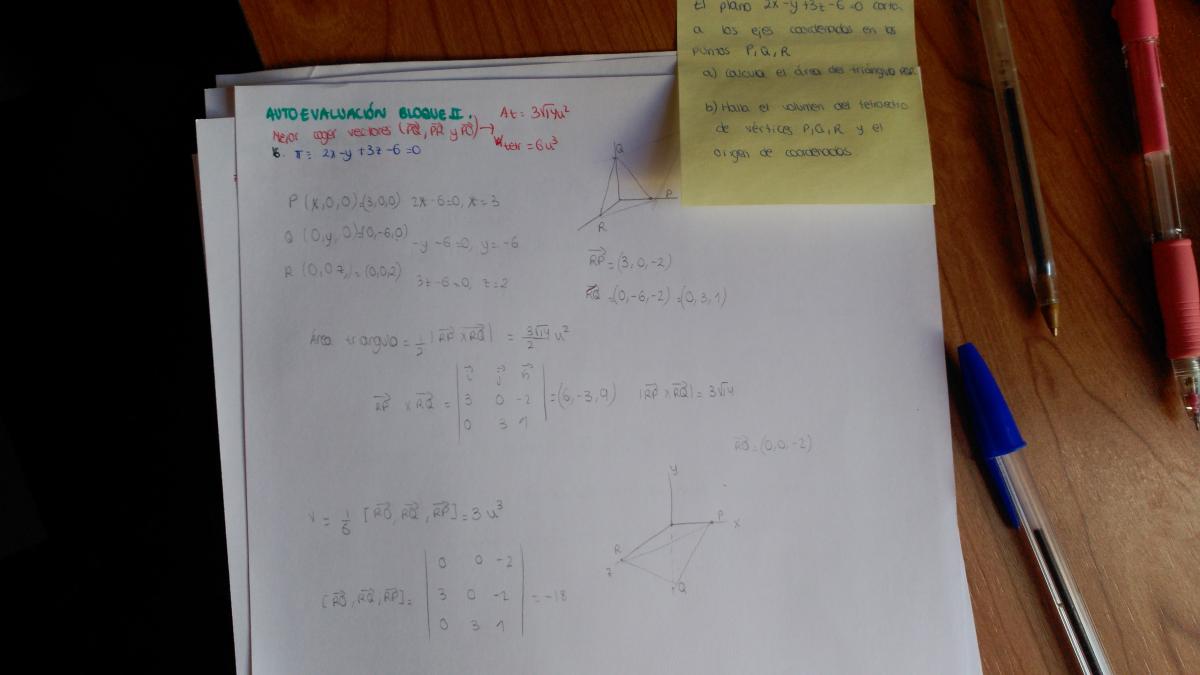 El plano 2x-y+3z-6=0 corta
a los ejes coordenados en los
puntos P, Q, R
a) Calcula el área del triángulo PQR
b) Halla el volumen del tetraedro
de vértices P, Q, R y el
origen de coordenadas
AUTOEVALUACIÓN BLOQUE II.
At = 3√14 u²
Mejor coger vectores (PQ, PR y PO) →
Vtetr = 6u³
6. π ≡ 2x-y+3z-6=0
P (x,0,0)=(3,0,0) 2x-6=0, x=3
Q (0,y,0)=(0,-6,0) -y-6=0, y=-6
R (0,0,z)=(0,0,2) 3z-6=0, z=2
Q
P
R
RP=(3,0,-2)
RQ=(0,-6,-2)=(0,3,1)
Área triangulo = 1/2 |RP×RQ| = 3√14/2 u²
RP × RQ = | i j k | = (6,-3,9) |RP×RQ| = 3√14
3 0 -2
0 3 1
RO=(0,0,-2)
V = 1/6 [RO, RQ, RP] = 3 u³
[RO, RQ, RP] = | 0 0 -2 | = -18
3 0 -2
0 3 1
y
P x
R
z
Q